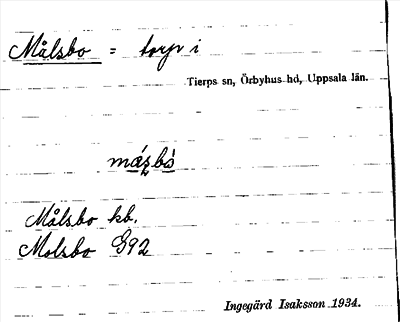 Målsbo = torp i
Tierps sn, Örbyhus hd, Uppsala län.
Målsbo kb.
Molsbo G92
Ingegärd Isaksson 1934.